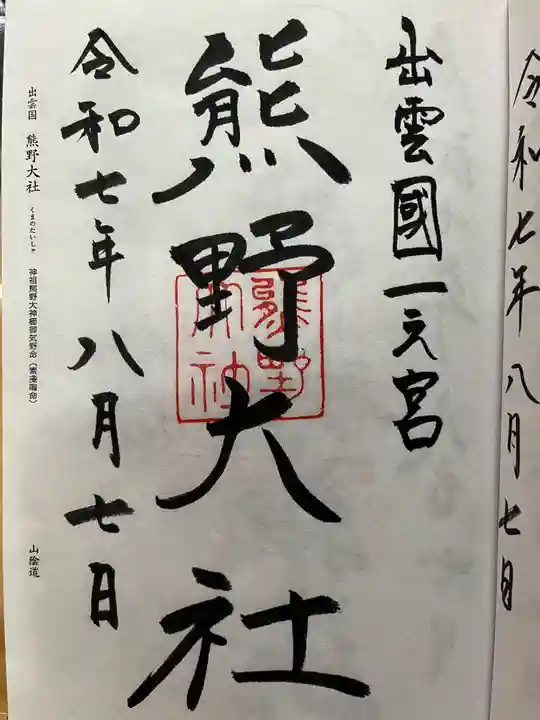 令和七年八月七日
出雲國一之宮
熊野大社
熊野大社
令和七年八月七日
出雲国 熊野大社 くまのたいしゃ 神祖熊野大神櫛御気野命(素戔嗚命)
山陰道